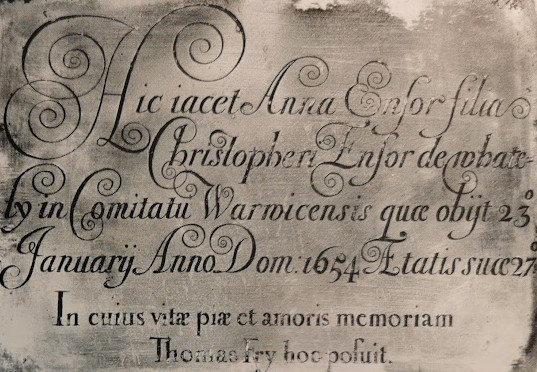 Hic iacet Anna Ensor filia
Christopheri Ensor de whate-
ly in Comitatu Warwicensis quæ obijt 23°
Januarij Anno Dom: 1654 Ætatis suæ 27°
In cuius vitæ piæ et amoris memoriam
Thomas Fry hoc posuit.